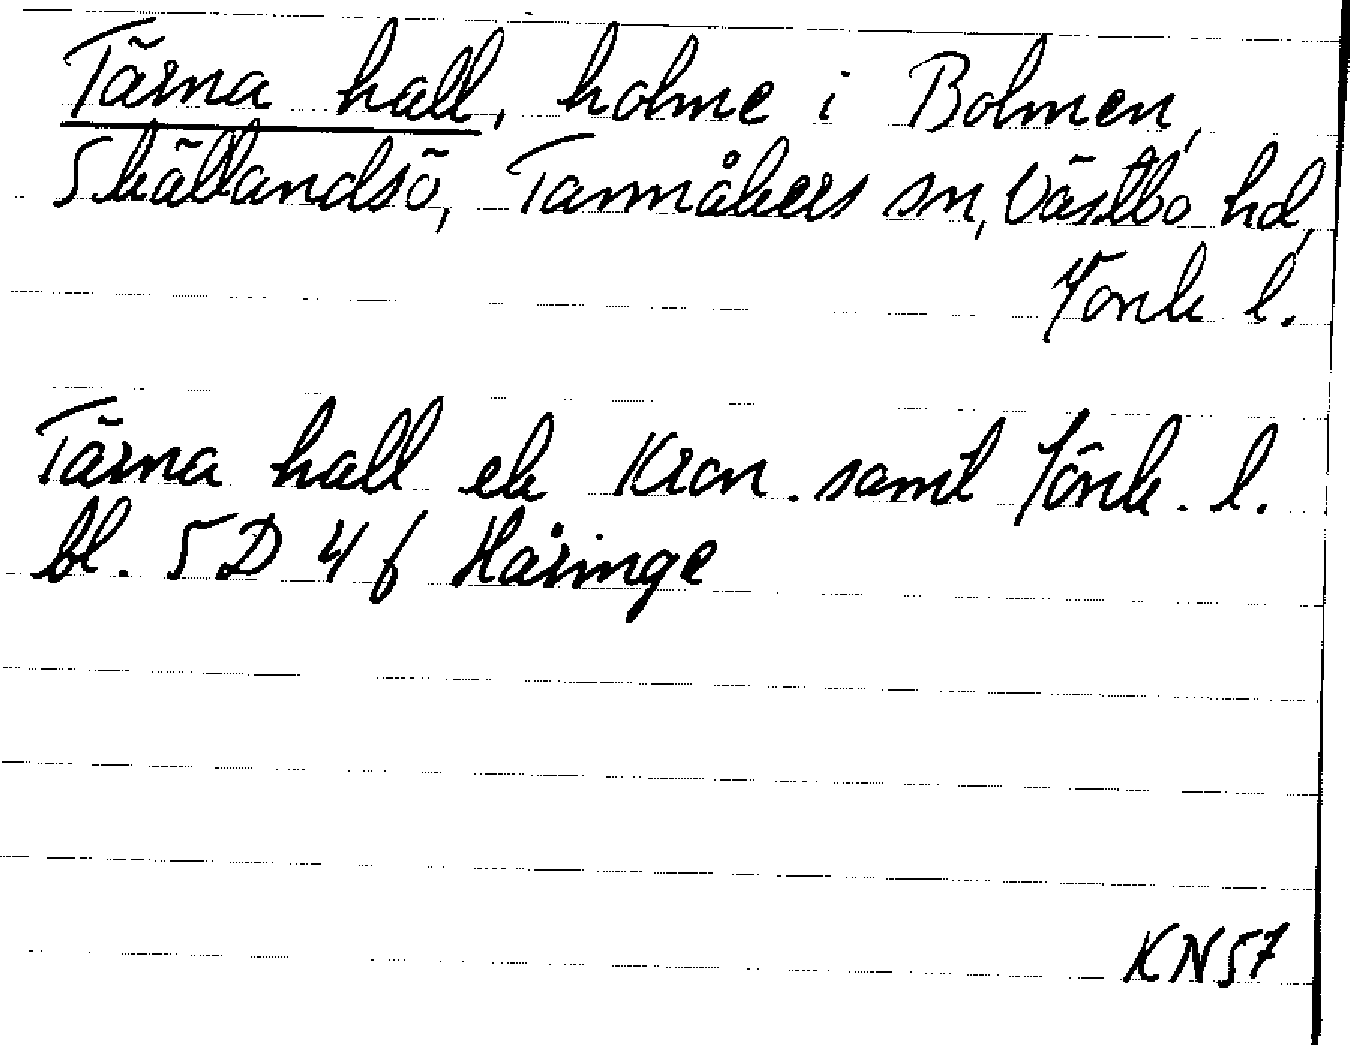 Tärna hall, holme i Bolmen,
Skällandsö, Tannåkers sn, Västbo hd,
Jönk l.
Tärna hall ek Kron. samt Jönk. l.
bl. 5D 4f Håringe
KN57